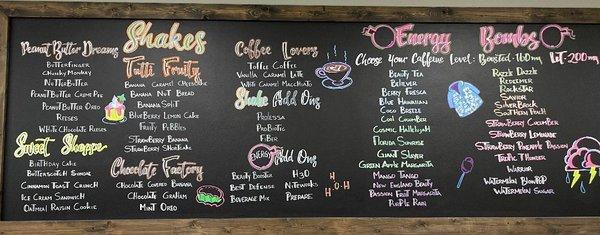 Shakes
Peanut Butter Dreams
Butterfinger
Chunky Monkey
Nutter Butter
Peanut Butter Creme Pie
Peanut Butter Oreo
Reeses
White Chocolate Reeses
Sweet Shoppe
Birthday Cake
Butterscotch Sundae
Cinnamon Toast Crunch
Ice Cream Sandwich
Oatmeal Raisin Cookie
Tutti Fruity
Banana Caramel Cheesecake
Banana Nut Bread
Banana Split
Blueberry Lemon Cake
Fruity Pebbles
Strawberry Banana
Strawberry Shortcake
Chocolate Factory
Chocolate Covered Banana
Chocolate Graham
Mint Oreo
Coffee Lovers
Toffee Coffee
Vanilla Caramel Latte
White Caramel Macchiato
Shake Add Ons
Prolessa
Probiotic
Fiber
Energy Add Ons
Beauty Booster H3O
Best Defense Niteworks
Beverage Mix Prepare
H
H-O-H
Energy Bombs
Choose Your Caffeine Level: Boosted-160mg Lit-200mg
Beauty Tea
Believer
Berry Fresca
Blue Hawaiian
Coco Breeze
Cool Cucumber
Cosmic Hallelujah
Florida Sunrise
Giant Slayer
Green Apple Margarita
Mango Tango
New England Beauty
Passion Fruit Margarita
Purple Rain
Razzle Dazzle
Redeemer
Rockstar
Savior
Silver Brock
Southern Peach
Strawberry Cucumber
Strawberry Lemonade
Strawberry Pineapple Passion
Traffic Thunder
Warrior
Watermelon BlowPop
Watermelon Sugar